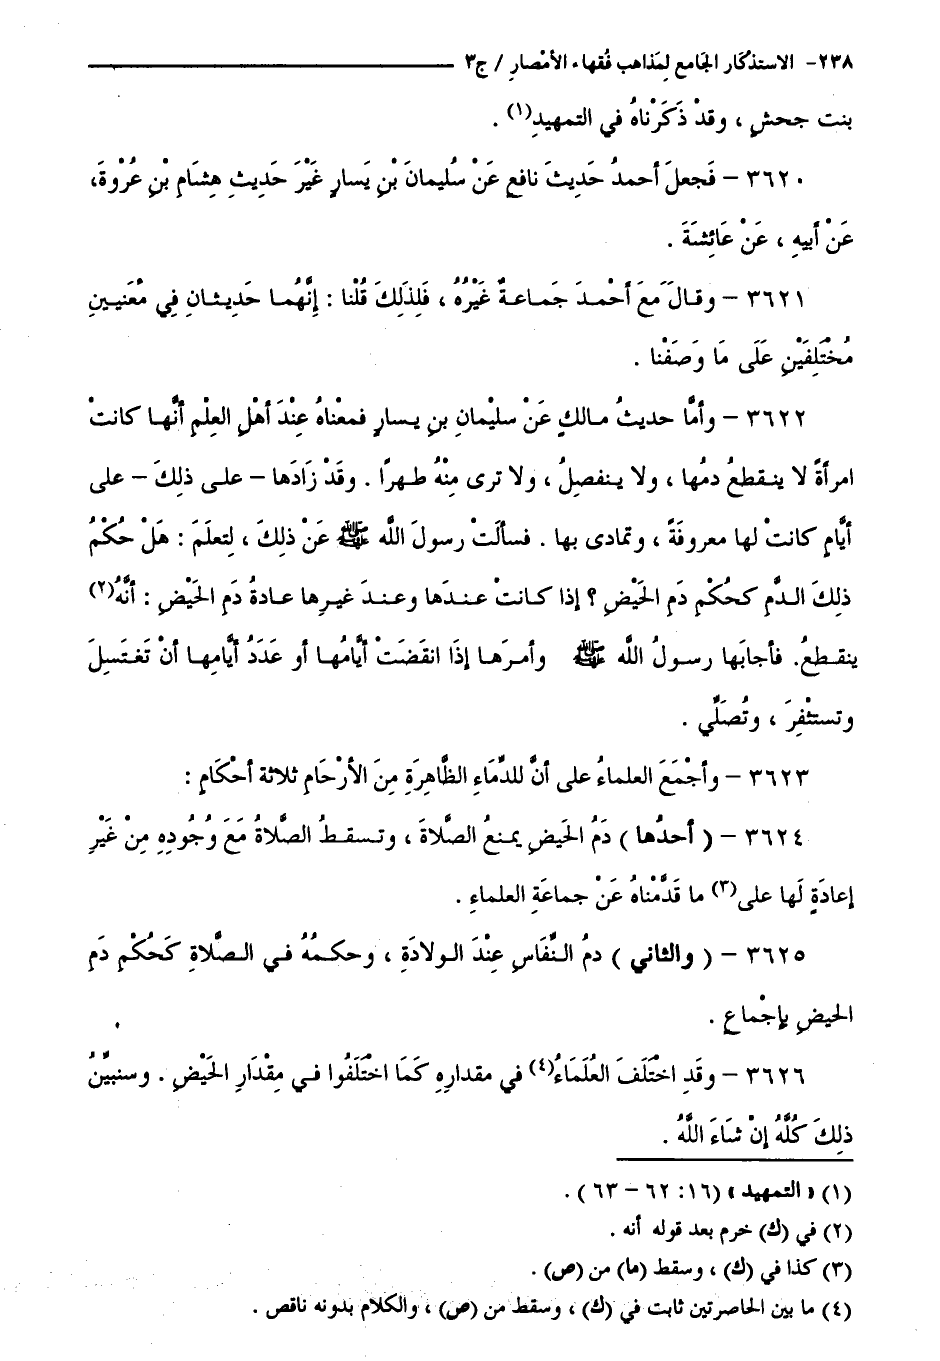 ٢٣٨- الاستذْكَار الجَامع لِمَذاهب فُقهاء الأَمْصار / ج٣
بنت جحشٍ ، وقدْ ذَكَرْناهُ في التمهيدِ(١) .
٣٦٢٠ – فَجعلَ أحمدُ حَديثَ نافعٍ عَنْ سُليمانَ بْنِ يَسارٍ غَيْرَ حَديثِ هِشَامِ بْنِ عُرْوةَ،
عَنْ أبيهِ ، عَنْ عَائِشةَ .
٣٦٢١ – وقالَ مَعَ أحْمدَ جَماعةٌ غَيْرُهُ ، فَلِذَلِكَ قُلْنا : إنَّهُما حَديثانِ فِي مَعْنَيينِ
مُخْتَلِفَيْنِ عَلَى مَا وَصَفْنا .
٣٦٢٢ – وأمَّا حديثُ مالكٍ عَنْ سليمانِ بنِ يسارٍ فمعْناهُ عِنْدَ أهْلِ العِلْمِ أنَّها كانتْ
امرأةً لا ينقطعُ دمُها ، ولا ينفصلُ ، ولا ترى مِنْهُ طهرًا . وقَدْ زَادَها – على ذلِكَ – على
أيَّامٍ كانتْ لها معروفَةً ، وتمادى بها . فسألَتْ رسولَ اللَّه ﷺ عَنْ ذلِكَ ، لتعلَمَ : هَلْ حُكْمُ
ذلِكَ الدَّم كحُكْمِ دَمِ الحَيْضِ ؟ إذا كانتْ عندَها وعندَ غيرِها عادةُ دَمِ الحَيْضِ : أنَّهُ(٢)
ينقطعُ. فأجابَها رسولُ اللَّه ﷺ وأمرَها إذَا انقَضَتْ أيَّامُها أو عَدَدُ أيَّامِها أنْ تَغتَسِلَ
وتستثْفِرَ ، وتُصَلِّي .
٣٦٢٣ – وأجْمَعَ العلماءُ على أنَّ للدِّمَاءِ الظَّاهِرَةِ مِنَ الأرْحَامِ ثلاثة أحْكَامٍ :
٣٦٢٤ – ( أحدُها ) دَمُ الحَيضِ يمنعُ الصَّلاةَ ، وتسقطُ الصَّلاةُ مَعَ وُجُودِهِ مِنْ غَيْرِ
إعادَةٍ لَها على(٣) ما قدَّمْناهُ عَنْ جماعَةِ العلماءِ .
٣٦٢٥ – ( والثاني ) دمُ النَّفَاسِ عِنْدَ الولادَةِ ، وحكمُهُ في الصَّلاةِ كَحُكْمِ دَمِ
الحيضِ بإجْماعٍ .
٣٦٢٦ – وقَدِ اخْتَلَفَ العُلَمَاءُ(٤) في مقدارِهِ كَمَا اخْتَلَفُوا في مِقْدَارِ الحَيْضِ . وسنبيِّنُ
ذلِكَ كُلَّهُ إنْ شاءَ اللَّهُ .
(١) « التمهيد » (١٦: ٦٢ – ٦٣) .
(٢) في (ك) خرم بعد قوله أنه .
(٣) كذا في (ك) ، وسقط (ما) من (ص) .
(٤) ما بين الحاصرتين ثابت في (ك) ، وسقط من (ص) ، والكلام بدونه ناقص .